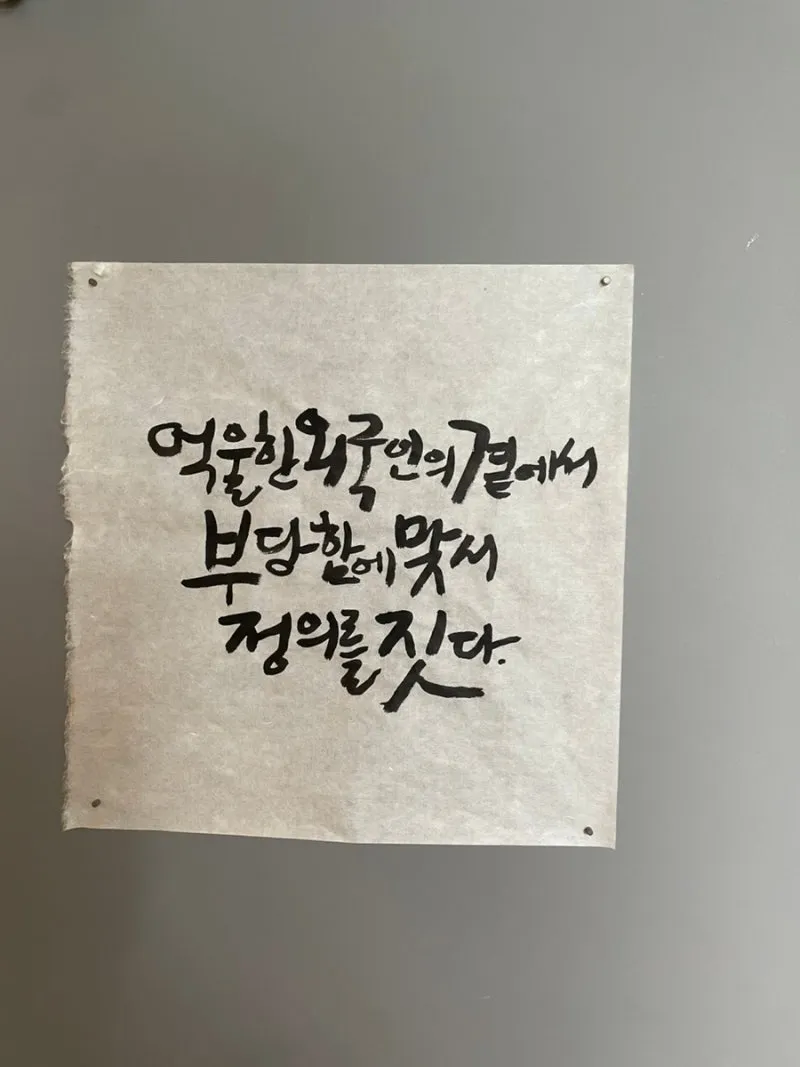 억울한 외국인의 곁에서
부당함에 맞서
정의를 짓다.